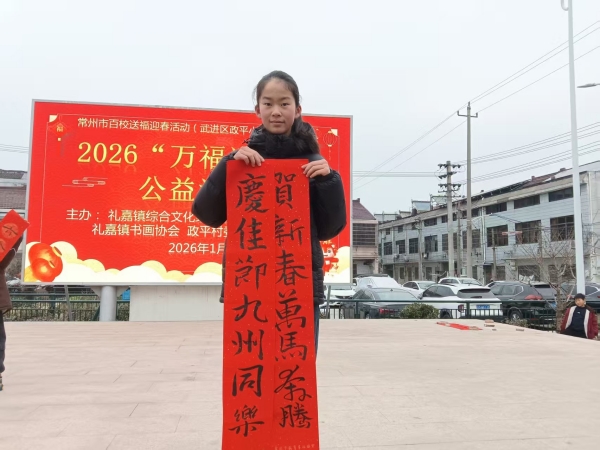 常州市百校送福迎春活动（武进区政平小
2026“万福
公益
主办：礼嘉镇综合文化
礼嘉镇书画协会 政平村
2026年1月
賀新春萬馬奔騰
慶佳節九州同樂